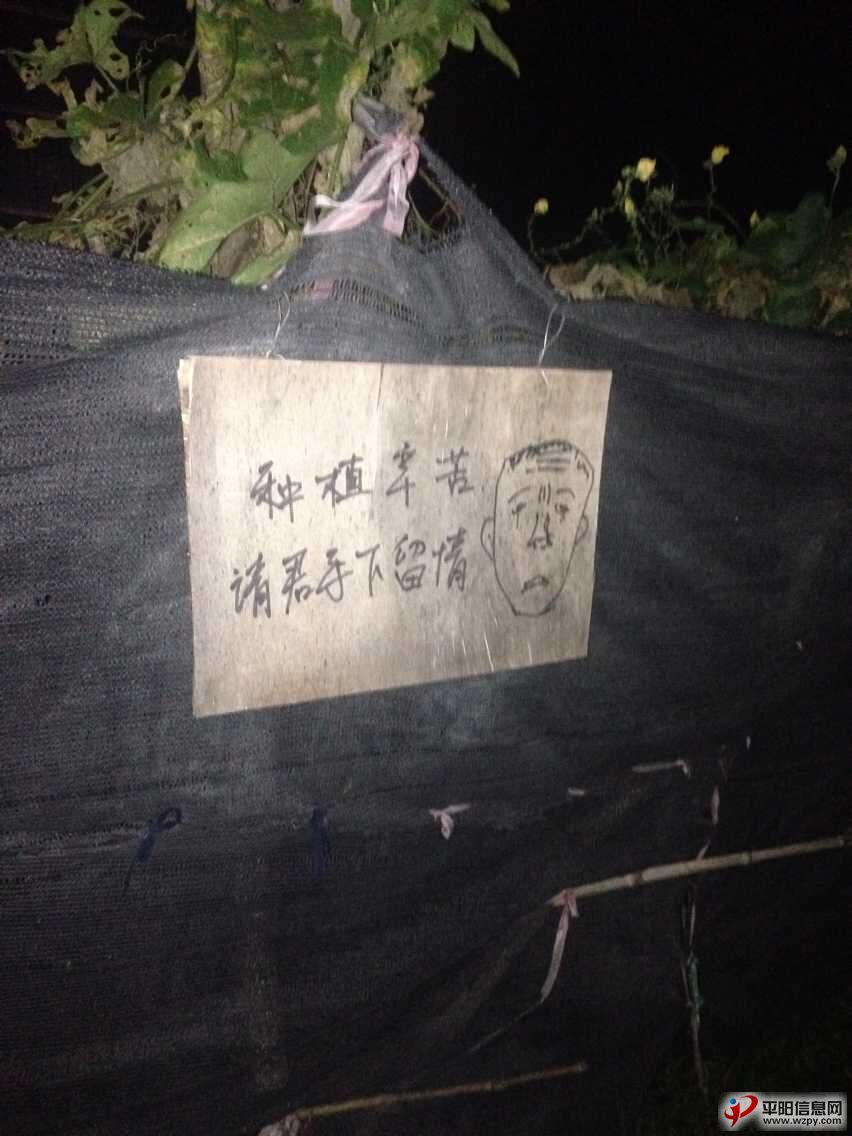 种植辛苦
请君手下留情
平阳信息网
www.wzpy.com